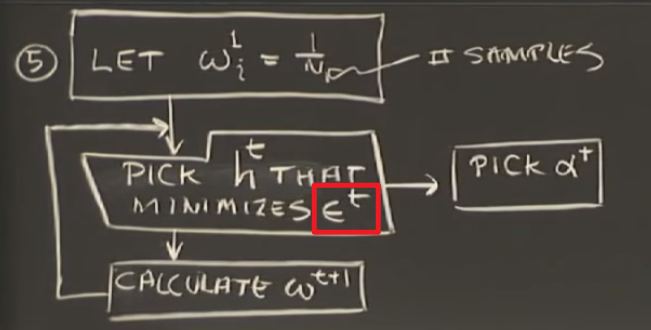 ⑤ LET ω_i^1 = 1/N # SAMPLES
PICK h^t THAT
MINIMIZES ε^t
PICK α^t
CALCULATE ω^{t+1}